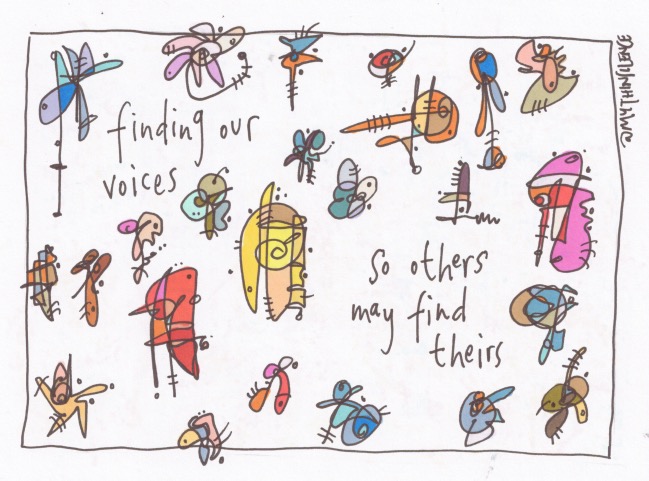 finding our
voices
so others
may find
theirs